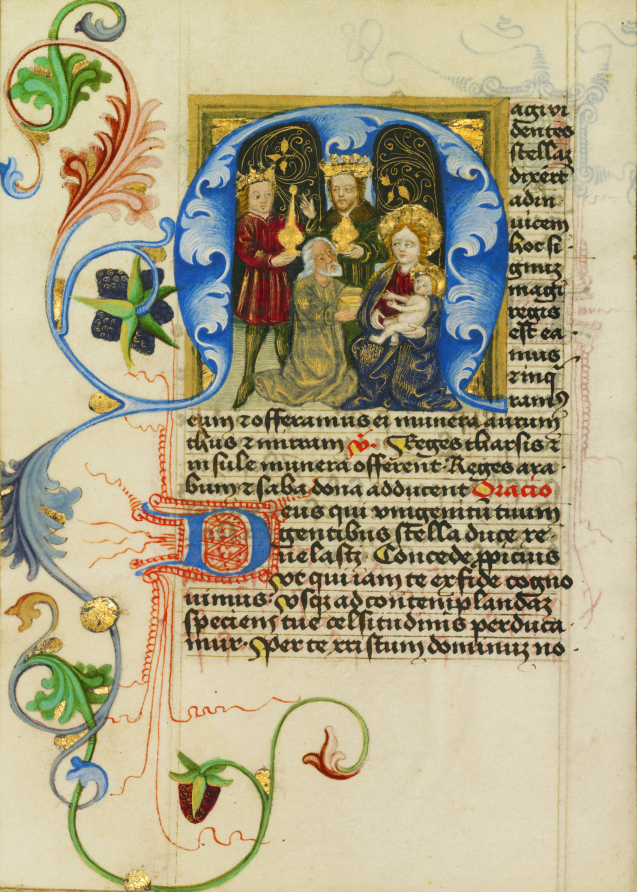 Magi vi
dentes
stellaz
dixert̄
ad in
uicem
hoc si
gnuz
magi
regis
est ea
mus
⁊ inq̄
ramꝰ
eum ⁊ offeramus ei munera aurum
thus ⁊ mirram v̄. Reges tharsis ⁊
insule munera offerent. Reges ara
bum ⁊ saba dona adducent Oracio
Deus qui vnigenitū tuum
gentibus stella duce re
uelasti. Concede ꝓpicius
vt qui iam te ex fide cogno
uimus. vsqꝫ ad contemplandaz
speciem tue celsitudinis perduca
mur. Per te xristum dominuz no